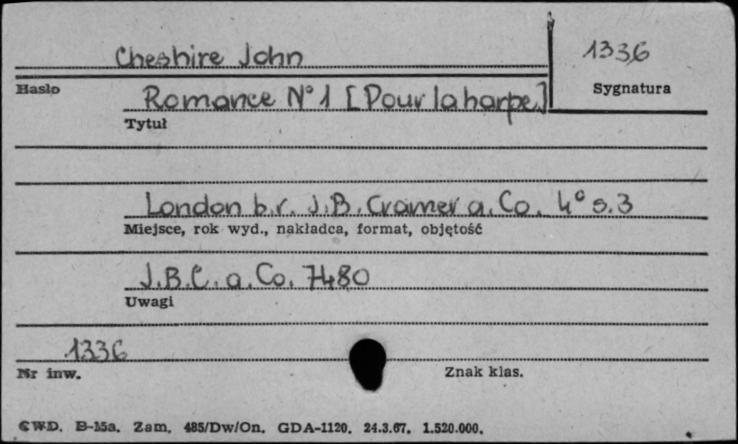 Cheshire John
1336
Hasło
Sygnatura
Romance N° 1 [Pour la harpe.]
Tytuł
London b.r. J.B. Cramer a. Co. 4° s. 3
Miejsce, rok wyd., nakładca, format, objętość
J.B.C. a. Co. 7480
Uwagi
1336
Nr inw.
Znak klas.
CWD. B-15a. Zam. 485/Dw/On. GDA-1120. 24.3.67. 1.520.000.